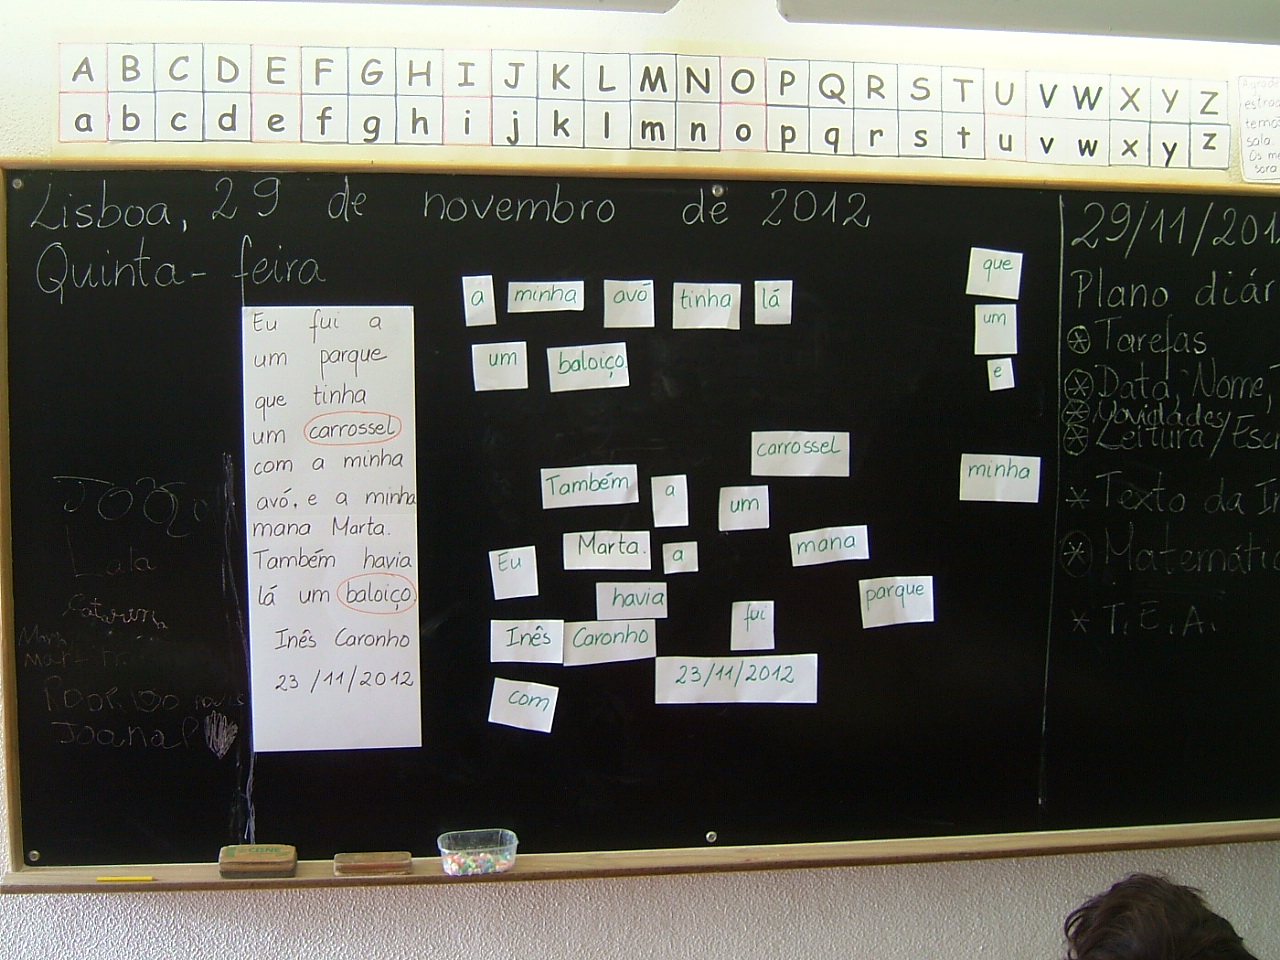 A B C D E F G H I J K L M N O P Q R S T U V W X Y Z
a b c d e f g h i j k l m n o p q r s t u v w x y z
Lisboa, 29 de novembro de 2012
Quinta-feira
Eu fui a
um parque
que tinha
um carrossel
com a minha
avó, e a minha
mana Marta.
Também havia
lá um baloiço.
Inês Caronho
23/11/2012
a minha avó tinha lá
um baloiço.
que
um
e
carrossel
minha
Também a um
Eu Marta. a mana
havia fui parque
Inês Caronho
23/11/2012
com
29/11/201
Plano diár
Tarefas
Data, Nome,
Novidades/
Leitura/Esc
Texto da I
Matemátic
T.E.A.
Lala
Catarina
Joana
sala